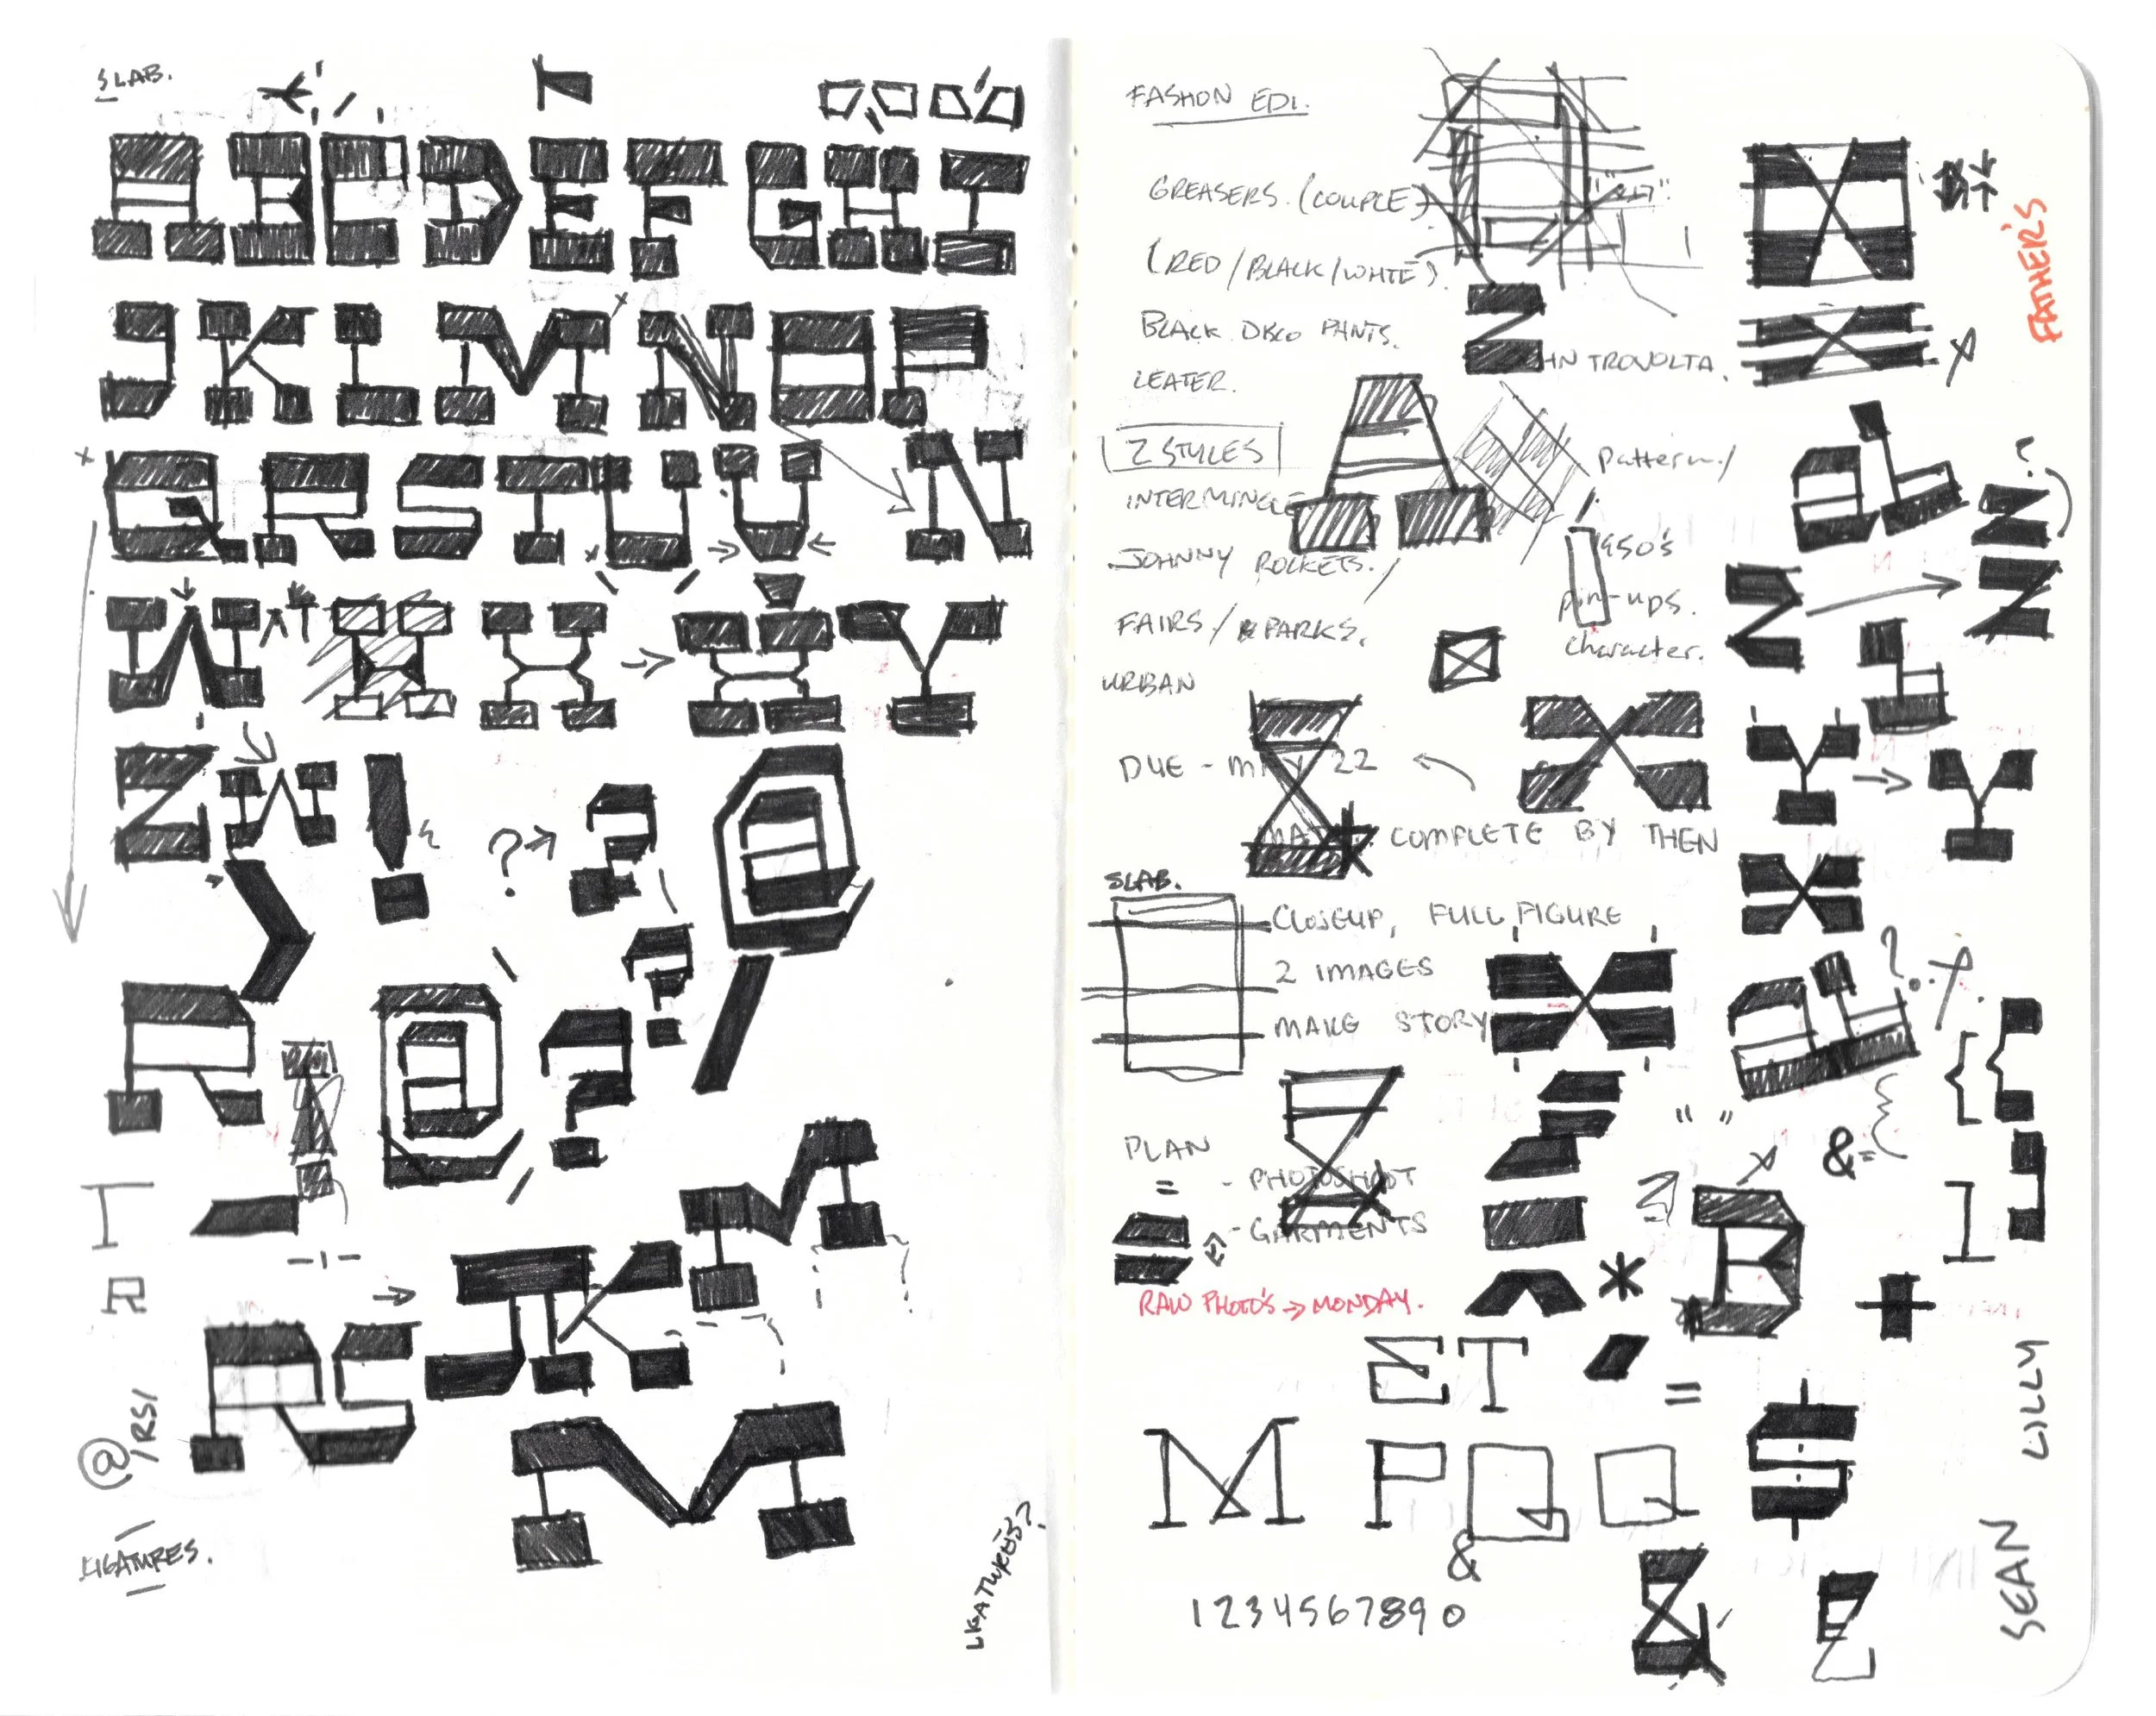 SLAB.
ABCDEFGHI
JKLMNOP
QRSTUV N
W X X Y
Z W ! ? → ? @
R @ ? ? /
JK
RS
M
@
/RS/
LIGATURES.
LIGATURES?
FASHON EDI.
GREASERS. (COUPLE)
(RED/BLACK/WHITE).
BLACK DISCO PANTS.
TROVOLTA.
LEATER.
2 STYLES
INTERMINGLE
A
pattern/
JOHNNY ROCKETS.
1950's
pin-ups.
character.
FAIRS/PARKS.
URBAN
DUE - MAY 22
COMPLETE BY THEN
SLAB.
CLOSEUP, FULL FIGURE
2 IMAGES
MAKE STORY
PLAN
= - PHOTOSHOOT
- GARMENTS
RAW PHOTO'S → MONDAY.
" "
&=
B
*
ET
=
M P Q Q
&
$
1234567890
&
FATHER'S
SEAN LILLY